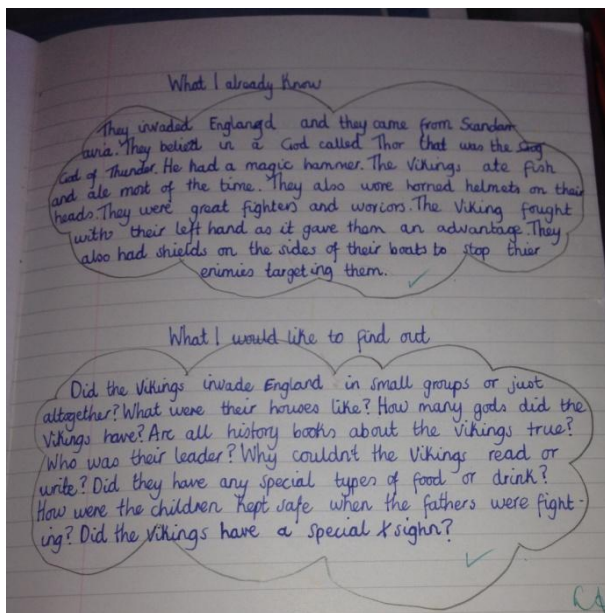 What I already know
They invaded Englangd and they came from Scandan
avia. They belied in a God called Thor that was the
God of Thunder. He had a magic hammer. The Vikings ate fish
and ale most of the time. They also wore horned helmets on their
heads. They were great fighters and woriors. The Viking fought
with their left hand as it gave them an advantage. They
also had shields on the sides of their boats to stop thier
enimies targeting them.
What I would like to find out
Did the Vikings invade England in small groups or just
altogether? What were their houses like? How many gods did the
Vikings have? Are all history books about the vikings true?
Who was their leader? Why couldn't the Vikings read or
write? Did they have any special types of food or drink?
How were the children kept safe when the fathers were fight-
ing? Did the Vikings have a special sighn?